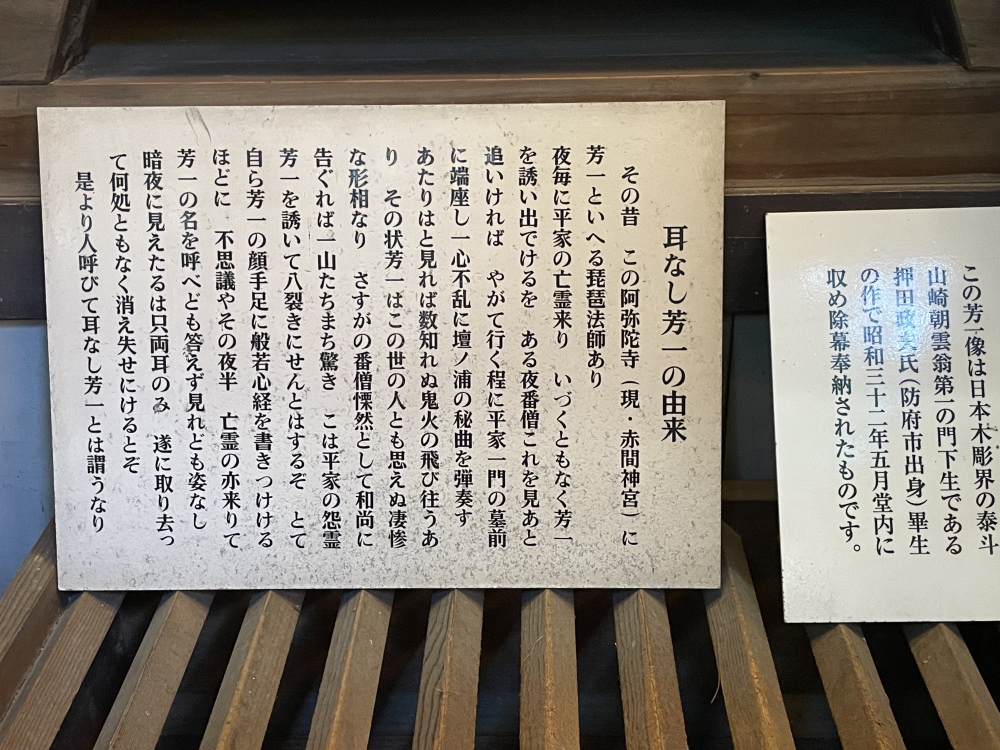 耳なし芳一の由来
その昔　この阿弥陀寺（現・赤間神宮）に
芳一といへる琵琶法師あり
夜毎に平家の亡霊来り　いづくともなく芳一
を誘い出でけるを　ある夜番僧これを見あと
追いければ　やがて行く程に平家一門の墓前
に端座し一心不乱に壇ノ浦の秘曲を弾奏す
あたりはと見れば数知れぬ鬼火の飛び往うあ
り　その状芳一はこの世の人とも思えぬ凄惨
な形相なり　さすがの番僧慄然として和尚に
告ぐれば一山たちまち驚き　こは平家の怨霊
芳一を誘いて八裂きにせんとはするぞ　とて
自ら芳一の顔手足に般若心経を書きつけける
ほどに　不思議やその夜半　亡霊の亦来りて
芳一の名を呼べども答えず見れども姿なし
暗夜に見えたるは只両耳のみ　遂に取り去っ
て何処ともなく消え失せにけるとぞ
是より人呼びて耳なし芳一とは謂うなり
この芳一像は日本木彫界の泰斗
山崎朝雲翁第一の門下生である
押田政夫氏（防府市出身）畢生
の作で昭和三十二年五月堂内に
収め除幕奉納されたものです。